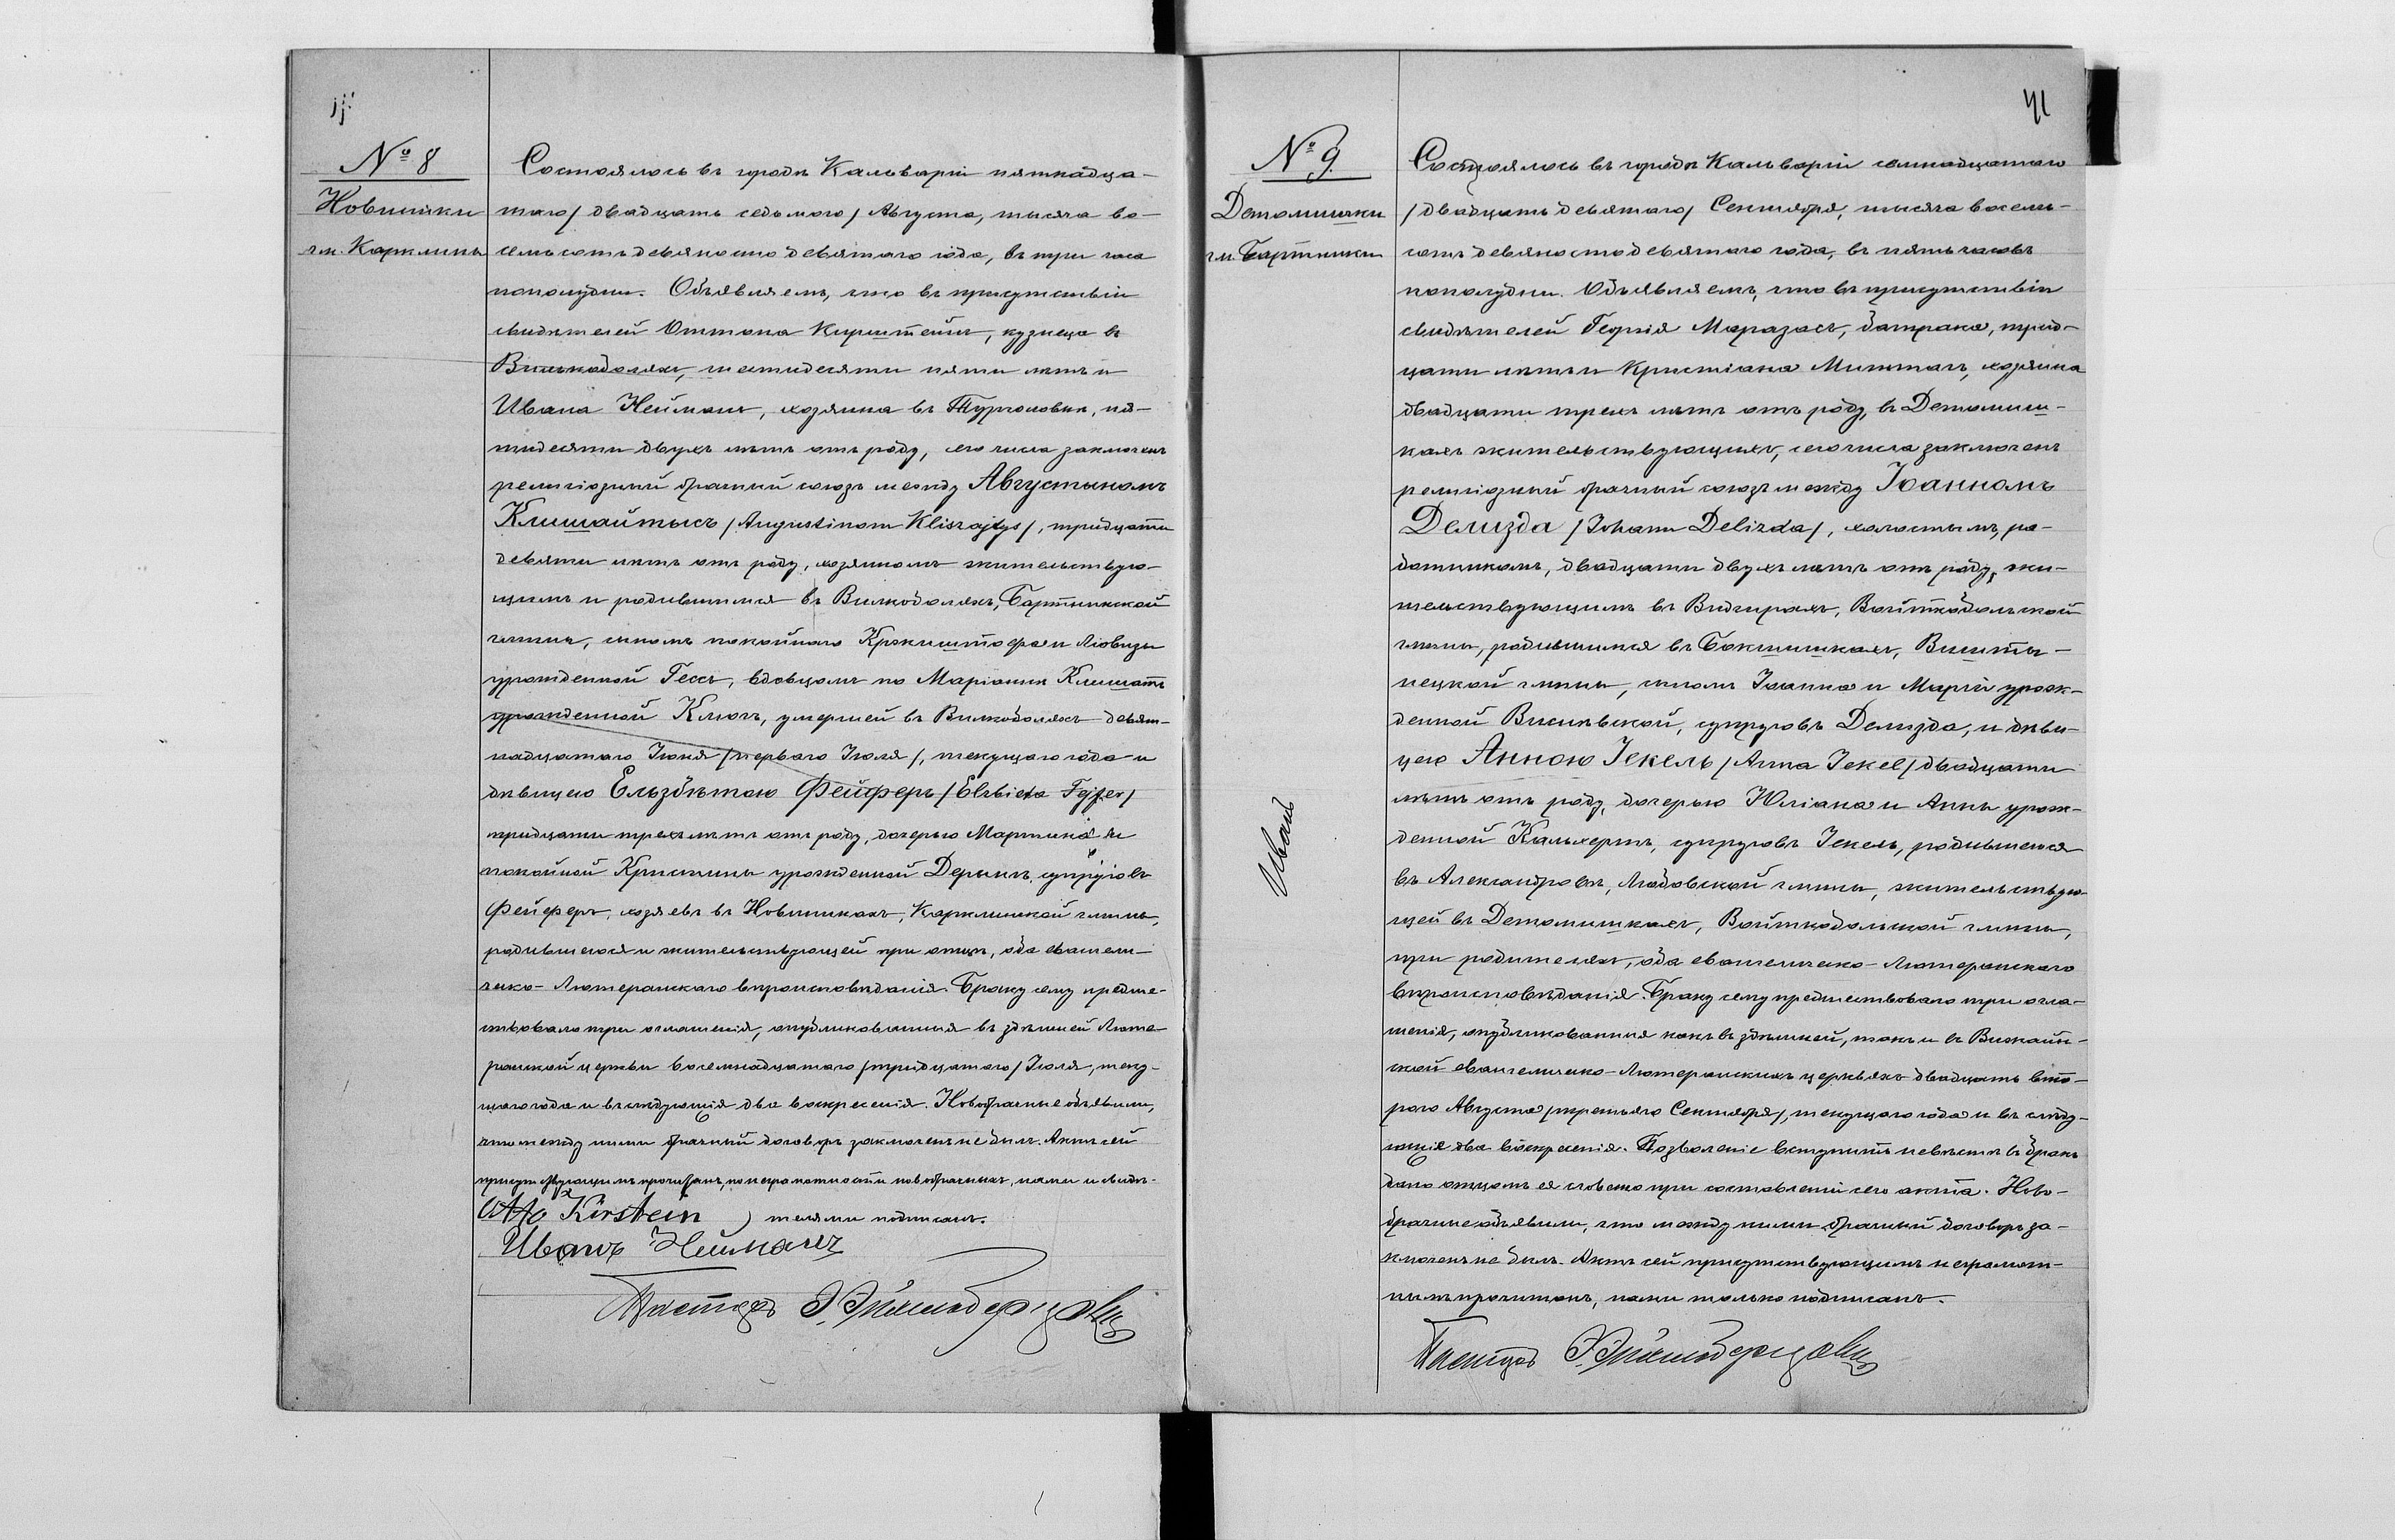 № 8
Новиники
гм. Карклины
Состоялось въ городѣ Кальваріи пятнадца-
таго /двадцать седьмаго/ Августа, тысяча во-
семьсотъ девяносто девятаго года, въ три часа
пополудни. Объявляемъ, что въ присутствіи
свидѣтелей Оттона Кирштейнъ, кузнеца въ
Вилькоболяхъ, шестидесяти пяти лѣтъ и
Ивана Нейманъ, хозяина въ Тургаловкѣ, пя-
тидесяти двухъ лѣтъ отъ роду, сего числа заключенъ
религіозный брачный союзъ между Августыномъ
Клишайтысъ /Augustinom Kliszajtys/, тридцати
девяти лѣтъ отъ роду, хозяиномъ жительствую-
щимъ и родившимся въ Вилкоболяхъ, Бартникской
гмины, сыномъ покойнаго Крокиштофа и Ловизы
урожденной Гессъ, вдовцомъ по Маріаннѣ Клишатъ
урожденной Клюгъ, умершей въ Вилкоболяхъ девят-
надцатаго Іюня /перваго Іюля/, текущаго года и
дѣвицею Ельзбѣтою Фейферъ /Elzbieta Fejfer/
тридцати трехъ лѣтъ отъ роду, дочерью Мартина и
покойной Кристины урожденной Дерингъ, супруговъ
Фейферъ, хозяевъ въ Новиникахъ, Карклинской гмины,
родившеюся и жительствующей при отцѣ, оба евангели-
ческо-Лютеранскаго вѣроисповѣданія. Браку сему предше-
ствовало три оглашенія, опубликованныя въ здѣшней Люте-
ранской церкви восемнадцатаго /тридцатаго/ Іюля, теку-
щаго года и въ слѣдующія два воскресенія. Новобрачные объявили,
что между ними брачный договоръ заключенъ не былъ. Актъ сей
присутствующимъ прочитанъ, по неграмотности новобрачныхъ, нами и свидѣ-
Otto Kirstein ) телями подписанъ.
Иванъ Нейманъ
Пасторъ
41
№ 9.
Детомишки
гм. Бартники
Иванъ
Состоялось въ городѣ Кальваріи семнадцатаго
/двадцать девятаго/ Сентября, тысяча восемь-
сотъ девяносто девятаго года, въ пять часовъ
пополудни. Объявляемъ, что въ присутствіи
свидѣтелей Георгія Маразасъ, батрака, трид-
цати лѣтъ и Кристіана Миттагъ, хозяина
двадцати трехъ лѣтъ отъ роду, въ Детомиш-
кахъ жительствующихъ, сего числа заключенъ
религіозный брачный союзъ между Іоанномъ
Делизда /Johann Delizda/, холостымъ, ра-
ботникомъ, двадцати двухъ лѣтъ отъ роду, жи-
тельствующимъ въ Видгирахъ, Войткобольской
гмины, родившимся въ Бокшишкахъ, Вишты-
нецкой гмины, сыномъ Іоанна и Маріи урож-
денной Висневской, супруговъ Делизда, и дѣви-
цею Анною Іекель /Anna Jekel/ двадцати
лѣтъ отъ роду, дочерью Юліана и Анны урож-
денной Кальхертъ, супруговъ Іекель, родившеюся
въ Александровѣ, Людовской гмины, жительствую-
щей въ Детомишкахъ, Войткобольской гмины,
при родителяхъ, оба евангелическо-Лютеранскаго
вѣроисповѣданія. Браку сему предшествовало три огла-
шенія, опубликованныя какъ въ здѣшней, такъ и въ Вижайн-
ской евангелическо-Лютеранскихъ церквяхъ двадцать вто-
рого Августа /третьяго Сентября/, текущаго года и въ слѣду-
ющія два воскресенія. Позволеніе вступить невѣстѣ въ бракъ
дано отцомъ ея словесно при составленіи сего акта. Ново-
брачные объявили, что между ними брачный договоръ за-
ключенъ не былъ. Актъ сей присутствующимъ неграмот-
нымъ прочитанъ, нами только подписанъ.
Пасторъ